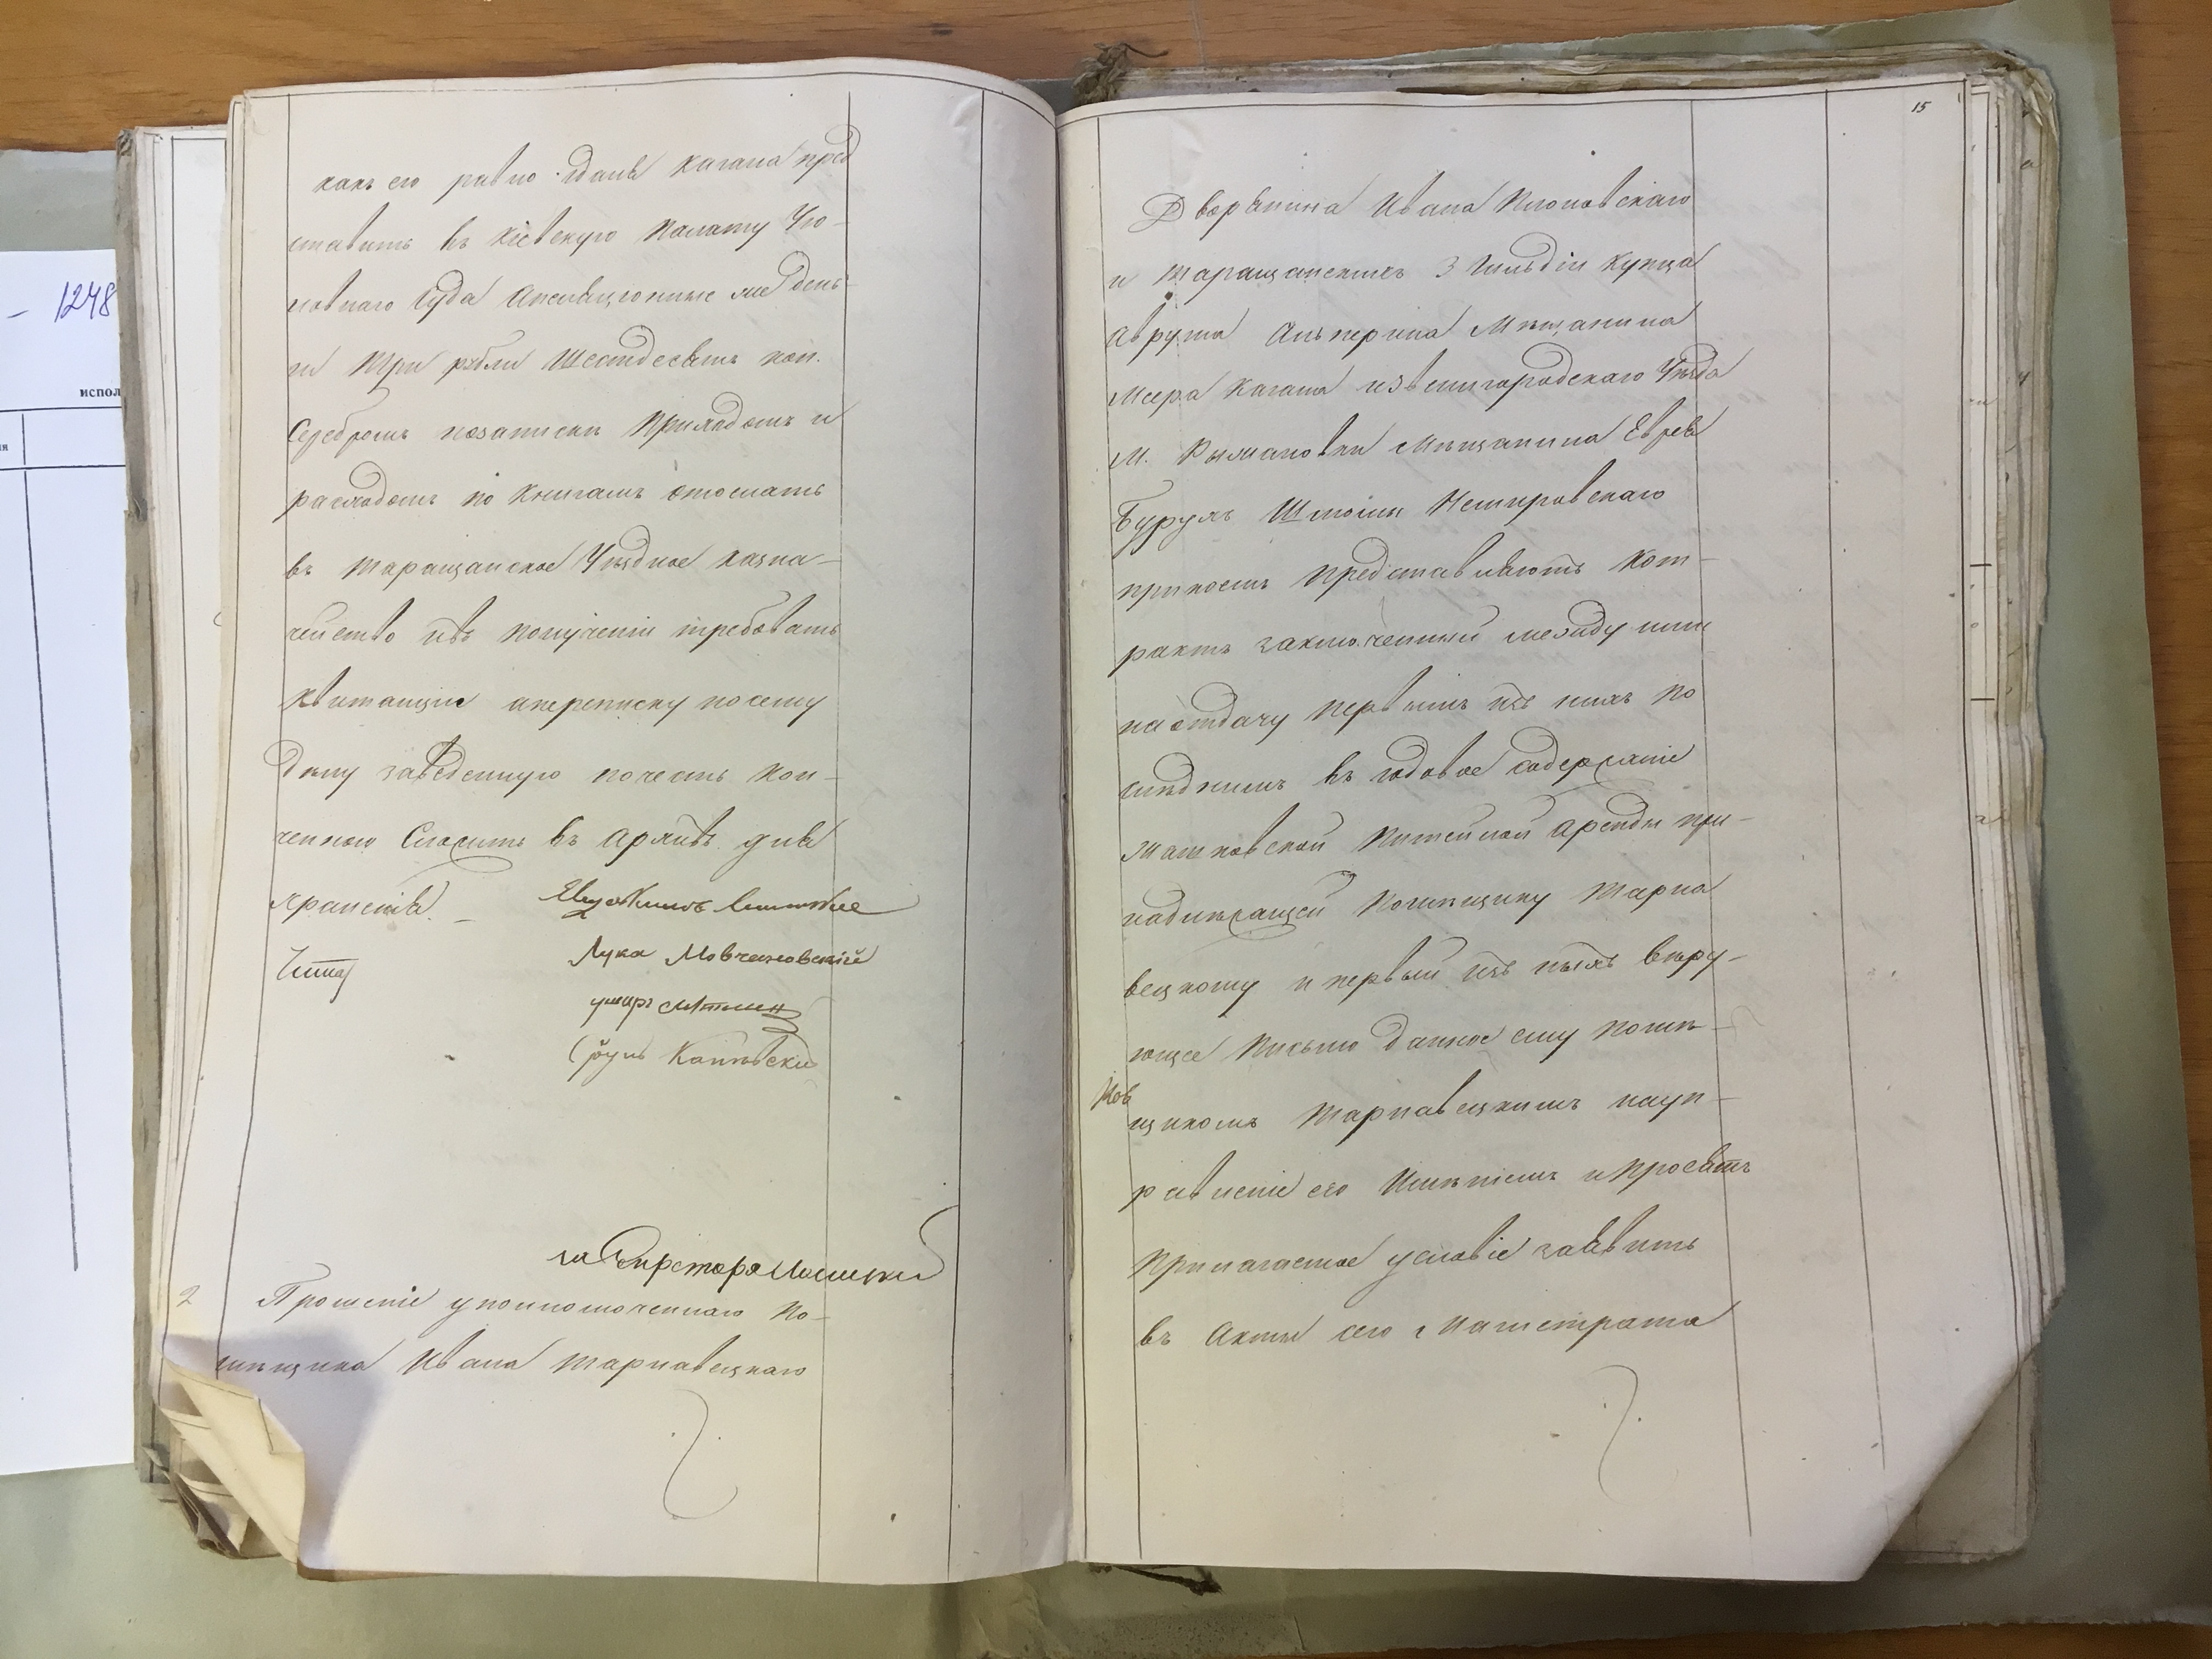 1248
испол
какъ его равно Ідаыь Кагана пред
ставить въ Кіевскую Палату Уго-
ловнаго Суда Апеляціонные же день
ги Три рубли Шестдесятъ коп.
Серебромъ позаписки Приходомъ и
расходомъ по книгамъ отослать
въ Таращанское Уѣздное казна-
чейство изъ полученіи требовать
квитанціи аперепискy посему
дѣлу заведенную почесть кон-
ченною Сложить въ Архивъ для
храненія. –
Лука Мовчановскій
2 Прошеніе уполномоченнаго По-
мѣщика Ивана Тарнавецкаго
15
Дворянина Ивана Клоповскаго
и Таращанскихъ 3 Гильдіи Купца
Аврума Альперина Мѣщанина
Меера Кагана извенигородскаго Уѣзда
М. Рыжановки Мѣщанина Еврея
Шмоилы Немировскаго
при коемъ Представляютъ Кон-
рактъ заключенный между ими
на отдачу первымъ изъ нихъ по
слѣднимъ въ годовое содержаніе
Питейной Аренды при-
надлежащей Помѣщику Тарна
вецкому и первый изъ ныхъ вѣру-
ющее Письмо данное ему помѣ-
щикомъ Тарнавецкимъ науп-
равленіе его Имѣніемъ и Просятъ
Прилагаемое условіе заявить
въ Акты сего Магистрата